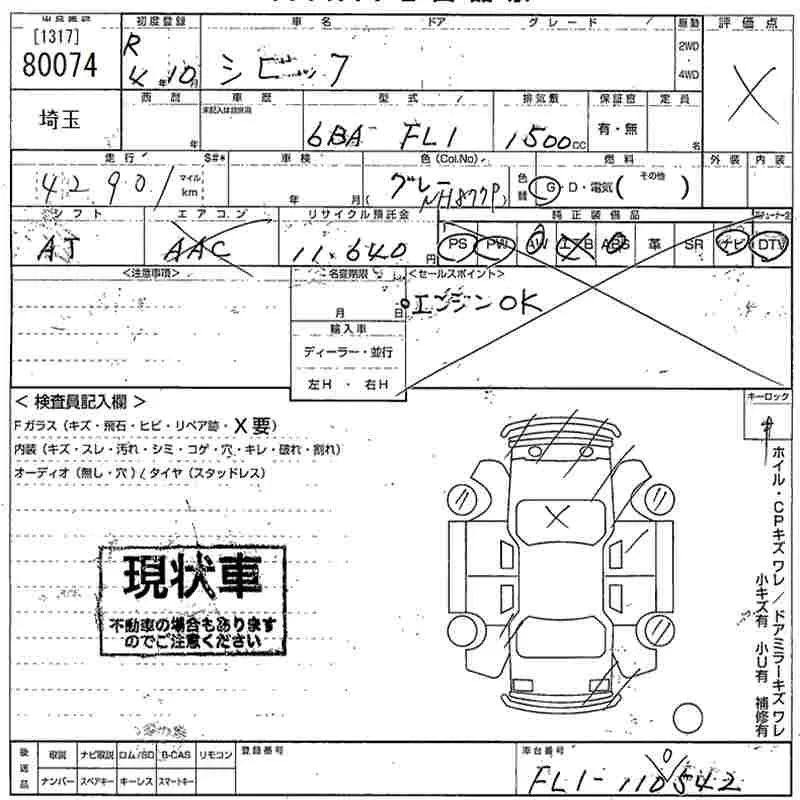 [1317]
80074
初度登録 車名 ドア グレード 駆動 評価点
R
4年10月 シビック 2WD・4WD X
埼玉
西暦 車歴 型式 排気数 保証書 定員
未記入は自家用
年 6BA-FL1 1500cc 有・無 名
走行 S#* 車検 色(Col.No) 燃料 外装 内装
42901 マイル km 年 月( グレー NH877P) 色替 G・D・電気( その他 )
シフト エアコン リサイクル預託金 純正装備品
AT AAC 11640円 PS PW AW エアB ABS 革 SR ナビ DTV
<注意事項> 名変期限 <セールスポイント>
月 日 エンジンOK
輸入車
ディーラー・並行
左H ・ 右H
<検査員記入欄> キーロック
Fガラス(キズ・飛石・ヒビ・リペア跡・X要)
内装(キズ・スレ・汚れ・シミ・コゲ・穴・キレ・破れ・割れ)
オーディオ(無し・穴)/タイヤ(スタッドレス)
X
ホイル・CPキズ ワレ/ドアミラーキズ ワレ
小キズ有 小U有 補修有
現状車
不動車の場合もあります
のでご注意ください
後送品 取説 ナビ取説 ロム/SD B-CAS リモコン 登録番号 車台番号
ナンバー スペアキー キーレス スマートキー FL1-110542